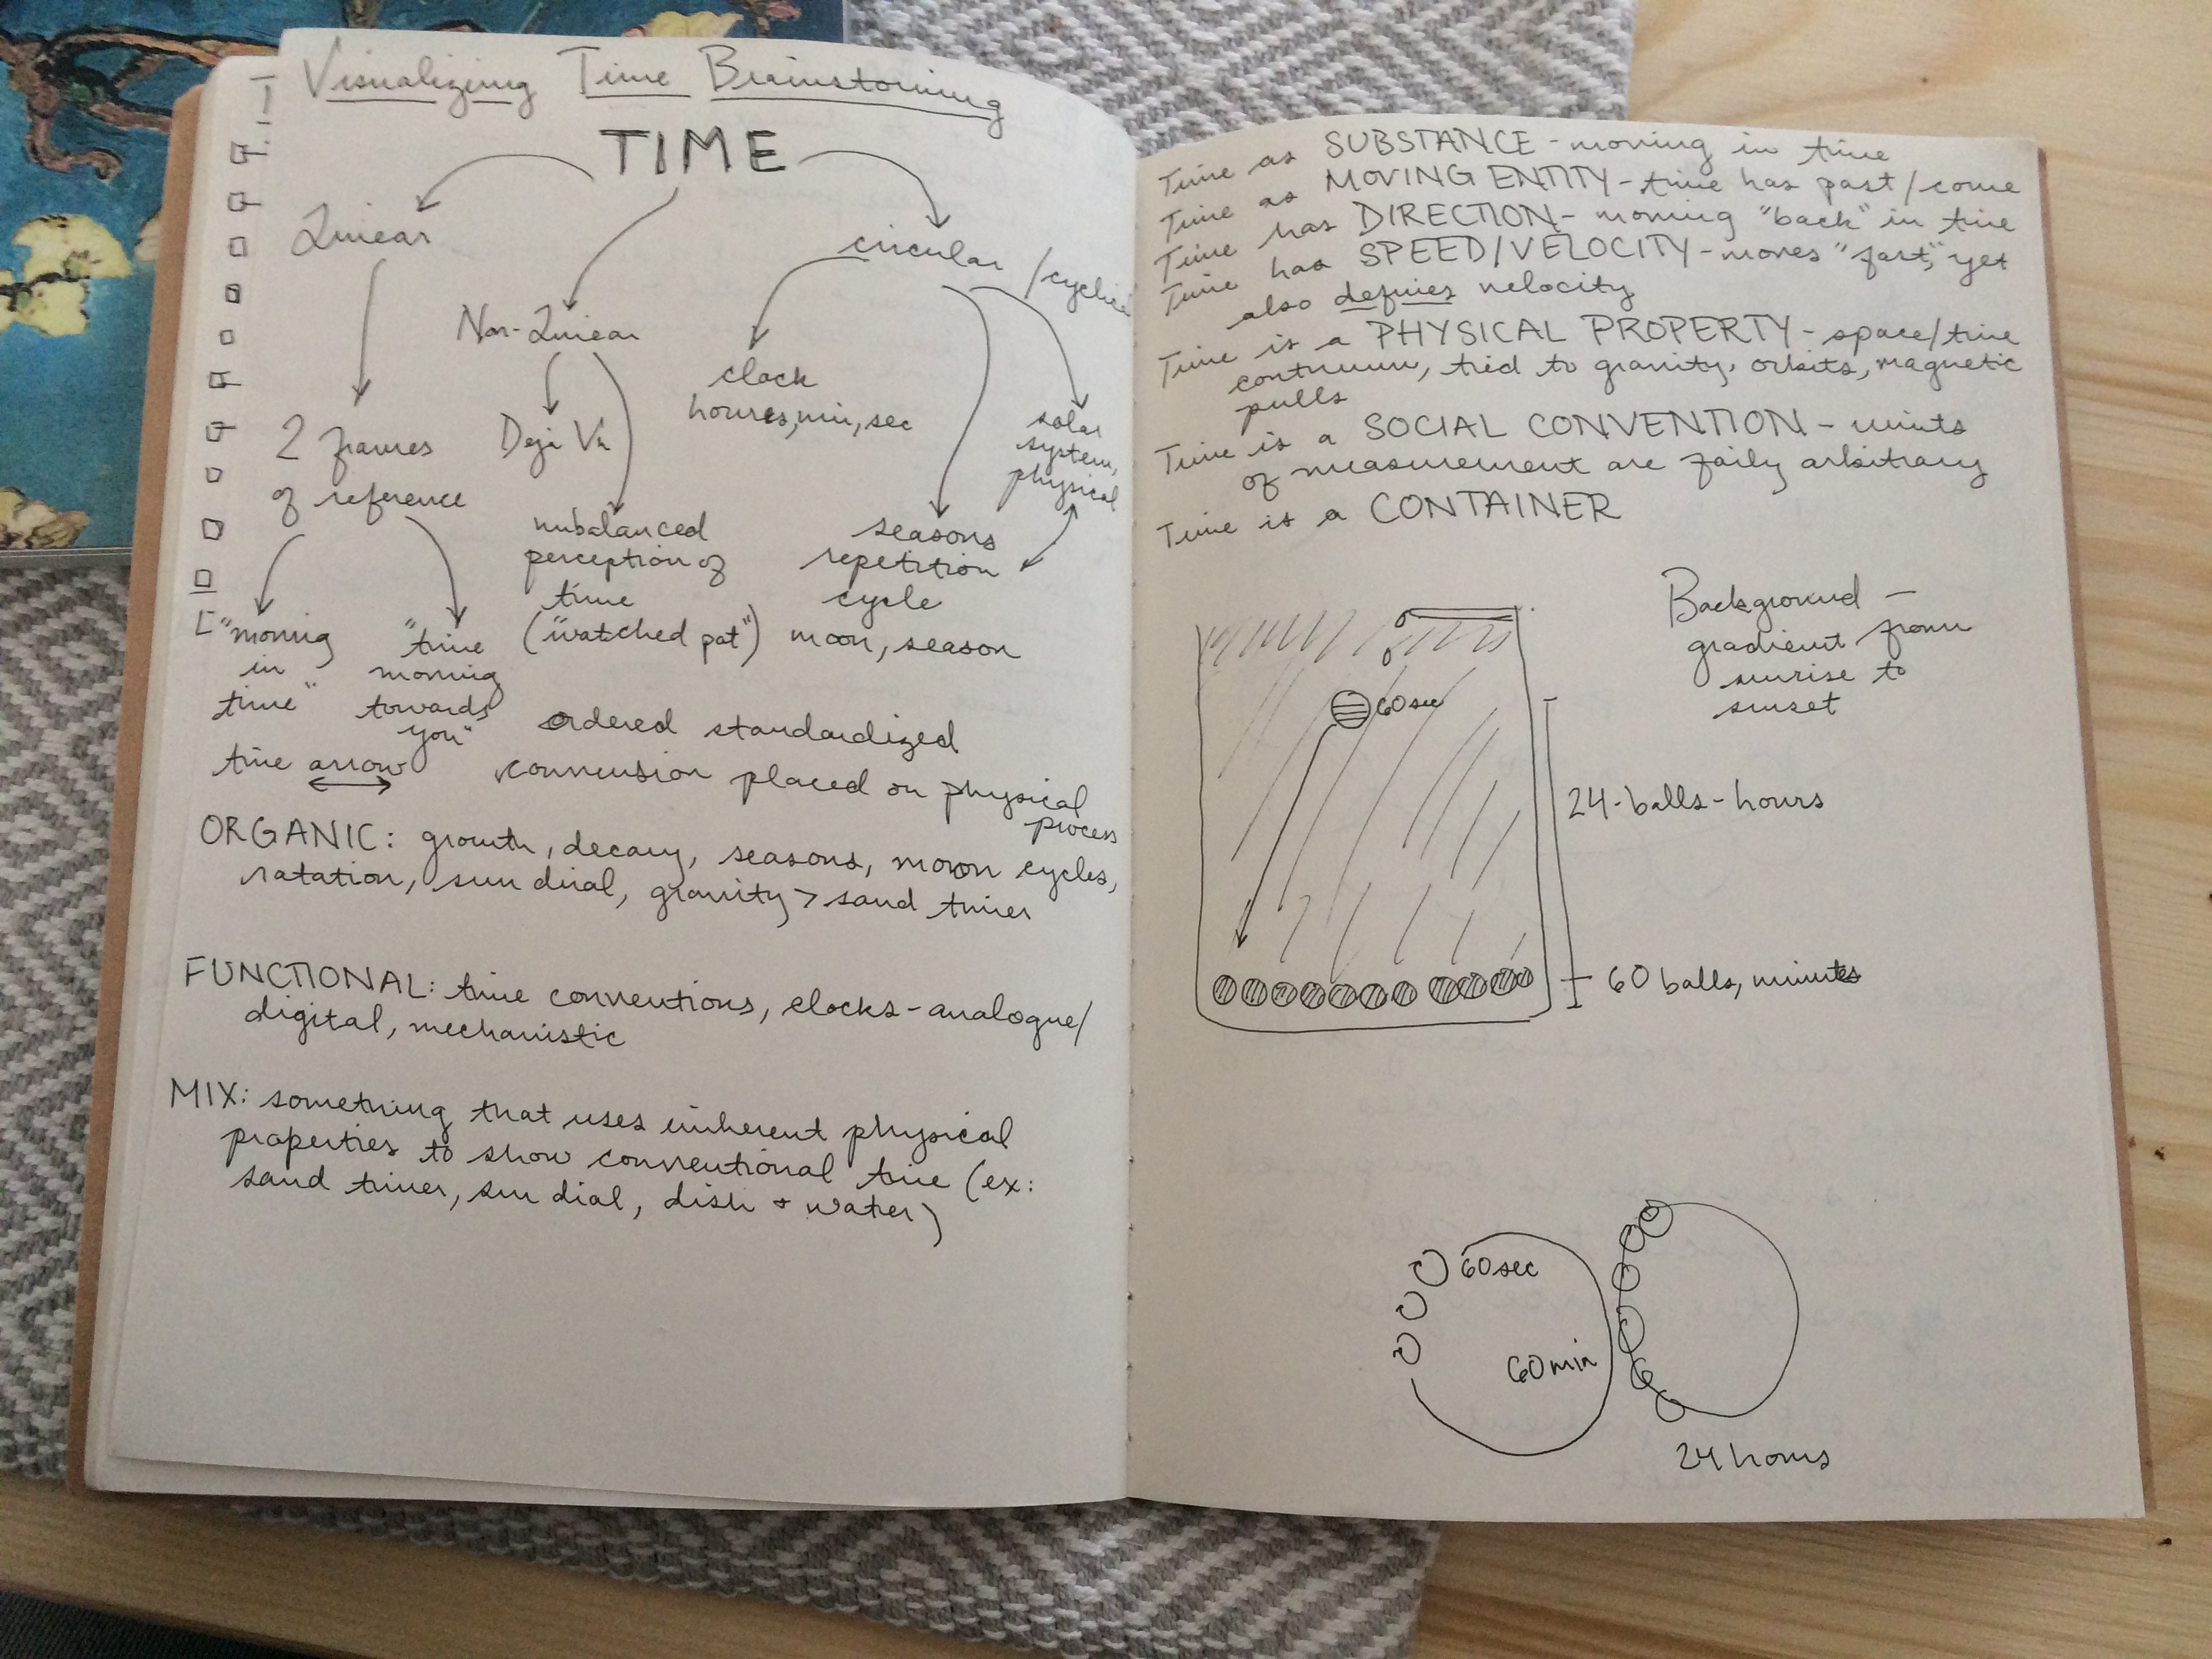 Visualizing Time Brainstorming
TIME
Linear
Non-Linear
circular / cyclic
2 frames
of reference
Deja Vu
clock
hours, min, sec
solar
system,
physical
["moving
in
time"
"time
moving
towards
you"
time arrow
unbalanced
perception of
time
("watched pot")
seasons
repetition
cycle
moon, season
ordered standardized
convention placed on physical
process
ORGANIC: growth, decay, seasons, moon cycles,
rotation, sun dial, gravity > sand timer
FUNCTIONAL: time conventions, clocks - analogue/
digital, mechanistic
MIX: something that uses inherent physical
properties to show conventional time (ex:
sand timer, sun dial, dish + water)
Time as SUBSTANCE - moving in time
Time as MOVING ENTITY - time has past/come
Time has DIRECTION - moving "back" in time
Time has SPEED/VELOCITY - moves "fast," yet
also defies velocity
Time is a PHYSICAL PROPERTY - space/time
continuum, tied to gravity, orbits, magnetic
pulls
Time is a SOCIAL CONVENTION - units
of measurement are fairly arbitrary
Time is a CONTAINER
60sec
Background -
gradient from
sunrise to
sunset
24-balls - hours
60 balls, minutes
60sec
60min
24 hours